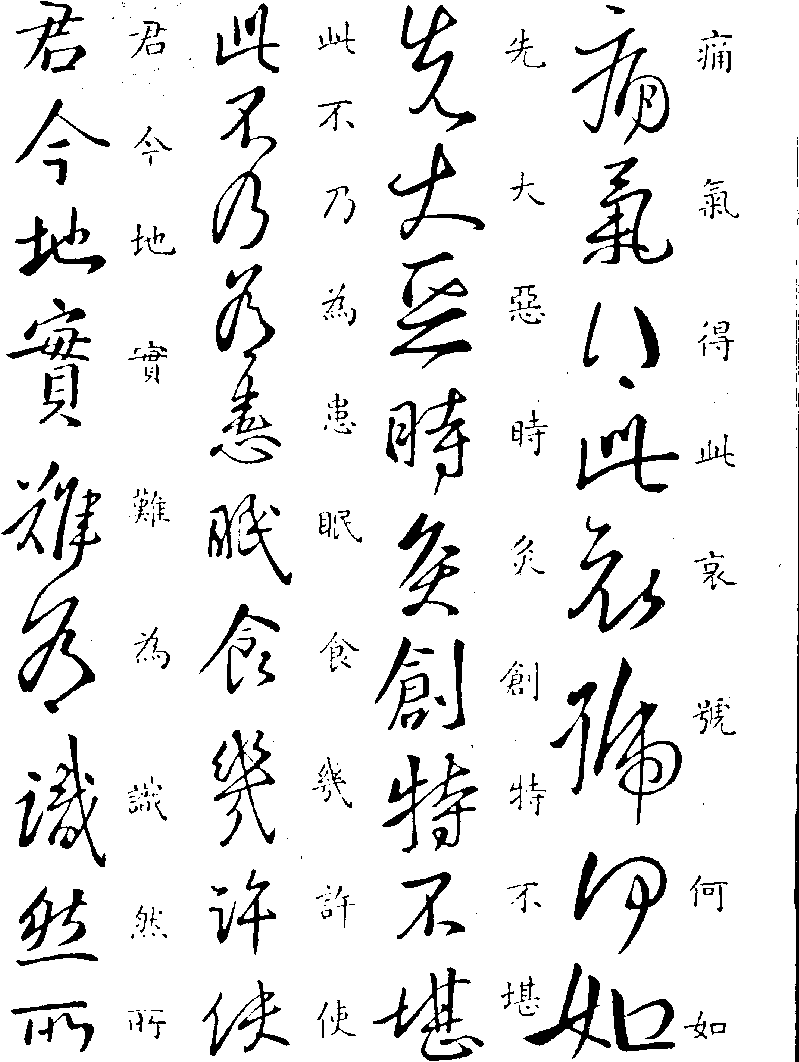 痛氣得此哀號何如
痛氣得此哀號何如
先大惡時灸創特不堪
先大惡時灸創特不堪
此不乃為患眠食幾許使
此不乃為患眠食幾許使
君今地實難為識然所
君今地實難為識然所